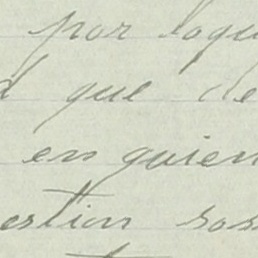 por loqu
que de
en quien
estion sos